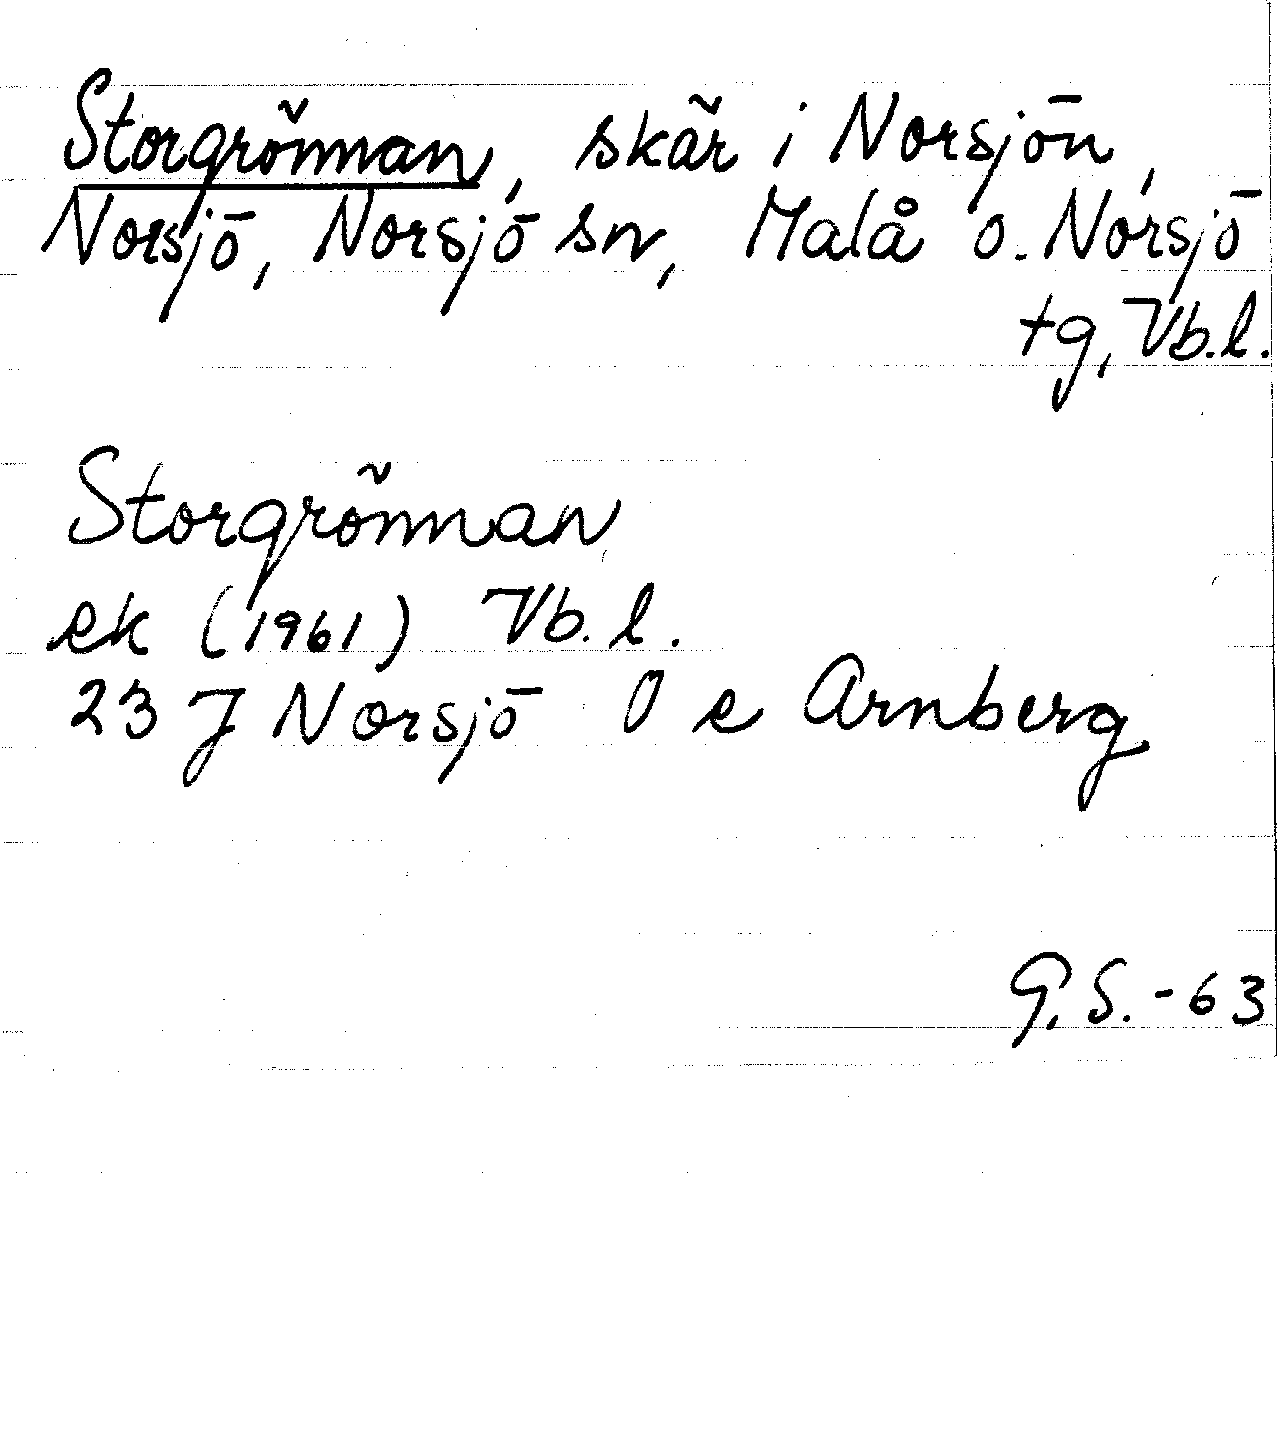 Storgrönnan, skär i Norsjön,
Norsjö, Norsjö sn, Malå o. Norsjö
tg, Vb.l.
Storgrönnan
ek (1961) Vb. l.
23 J Norsjö O e Arnberg
G. S. - 63